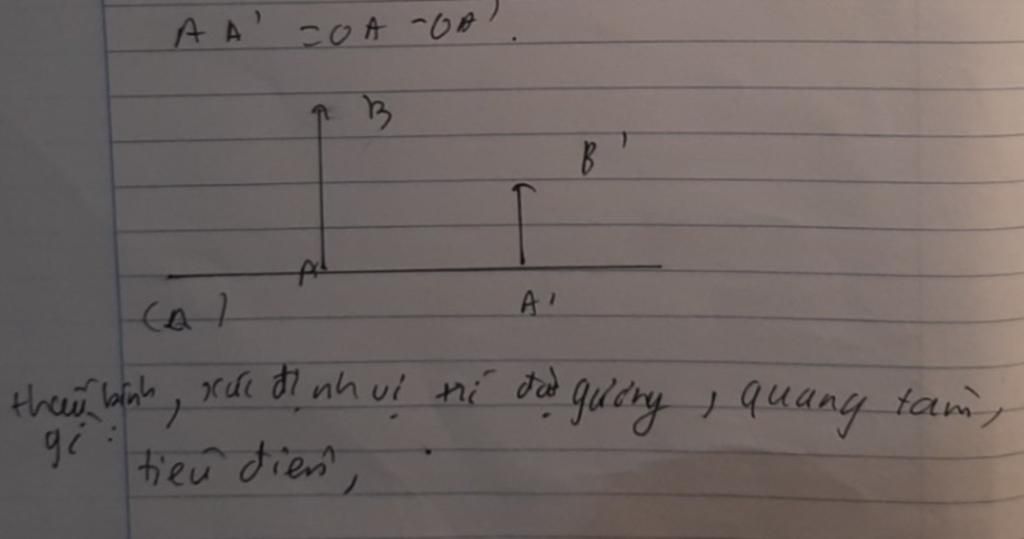 A A' = OA - OA'.
B
B'
A
(Δ)
A'
thấu kính gì:, xác định vị trí đặt gương, quang tâm,
tiêu điểm,